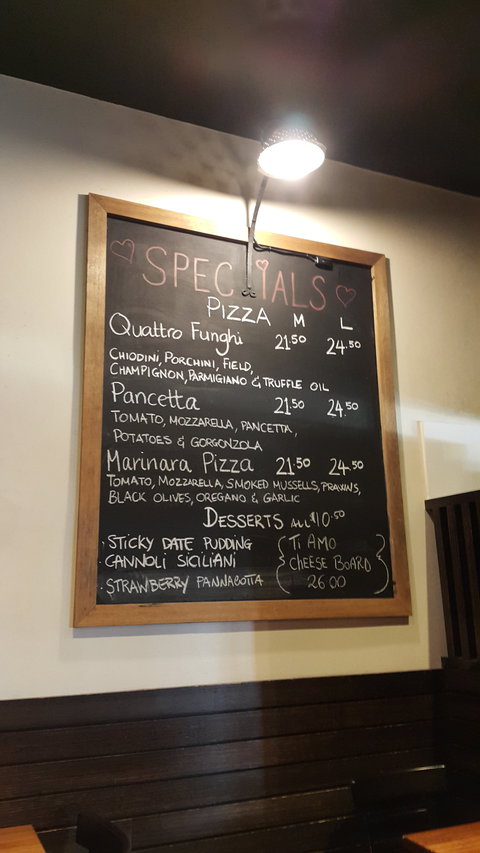 SPECIALS
PIZZA M L
Quattro Funghi 21.50 24.50
CHIODINI, PORCHINI, FIELD,
CHAMPIGNON, PARMIGIANO & TRUFFLE OIL
Pancetta 21.50 24.50
TOMATO, MOZZARELLA, PANCETTA,
POTATOES & GORGONZOLA
Marinara Pizza 21.50 24.50
TOMATO, MOZZARELLA, SMOKED MUSSELLS, PRAWNS,
BLACK OLIVES, OREGANO & GARLIC
DESSERTS ALL $10.50
· STICKY DATE PUDDING
· CANNOLI SICILIANI
· STRAWBERRY PANNACOTTA
{ TI AMO }
CHEESE BOARD
26.00